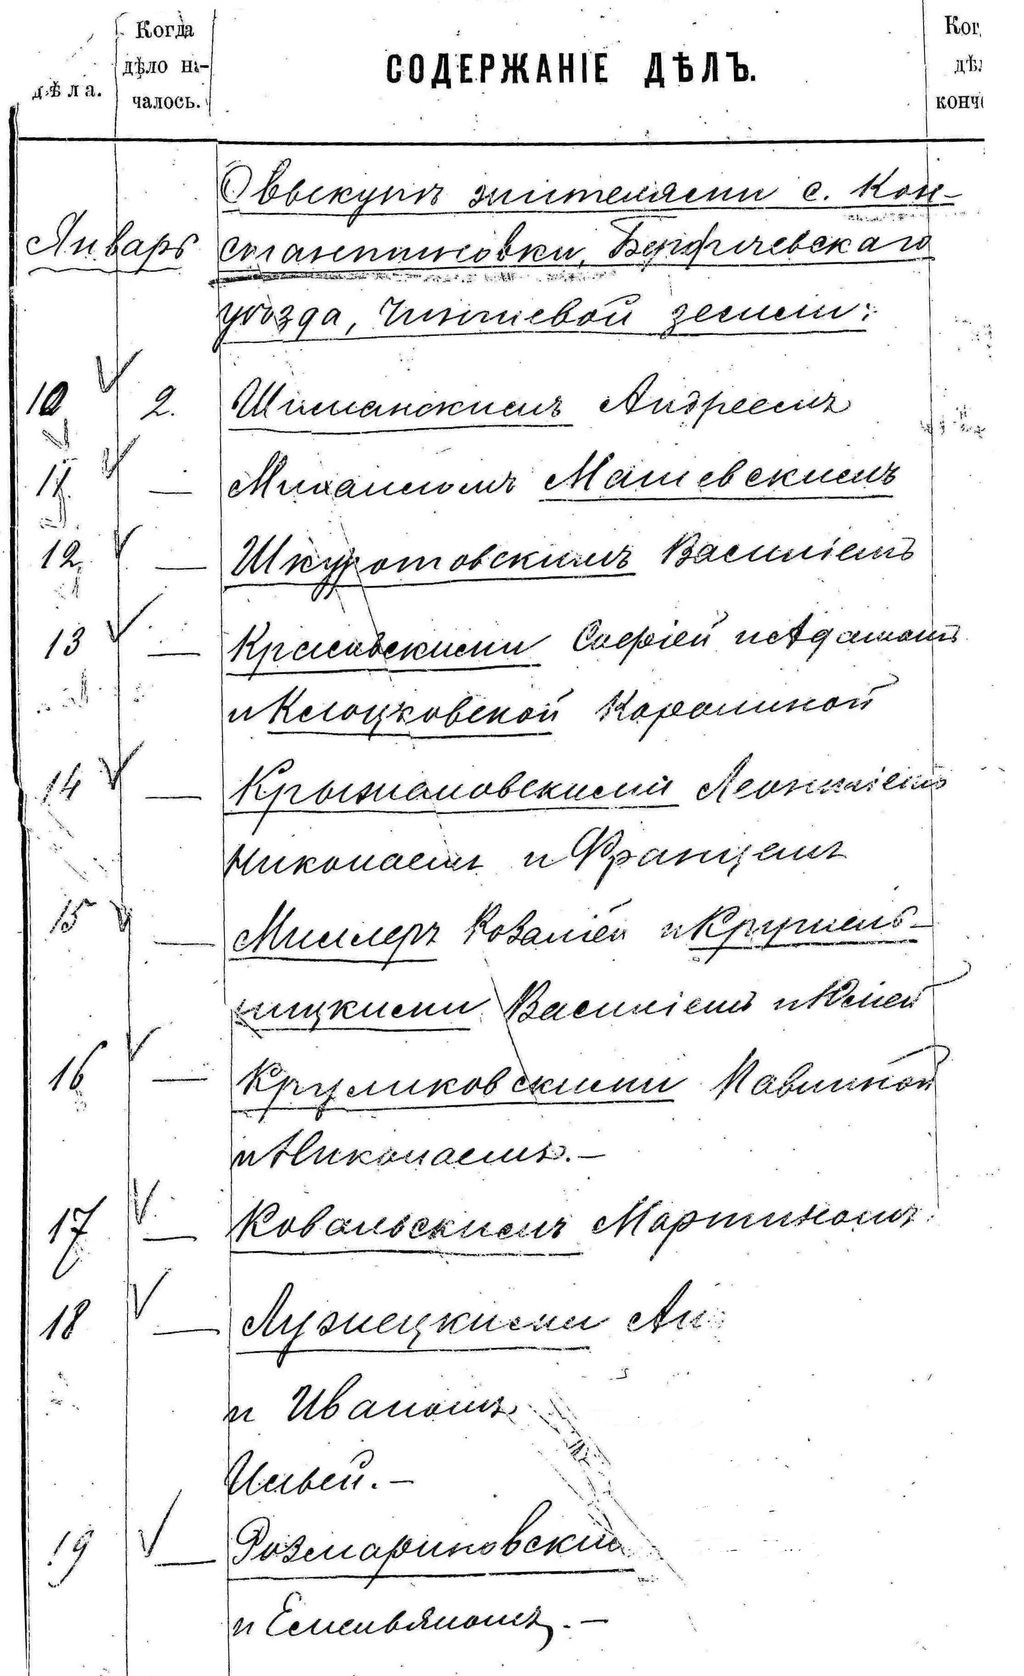 дѣла.
Когда
дѣло на-
чалось.
СОДЕРЖАНІЕ ДѢЛЪ.
Ког
дѣл
конче
О выкупѣ жителями с. Кон-
Январь
стантиновки, Бердичевскаго
уѣзда, Чиншевой земли:
10 2. Шиманскимъ Андреемъ
11 — Михаиломъ Машевскимъ
12 — Шкуротовскимъ Василіемъ
13 — Красовскими Софіей и Адамомъ
и Клоцковской Каролиной
14 — Крыжановскими Леонтіемъ
Николаемъ и Францемъ
15 — Миллеръ Розаліей и Крушель-
ницкими Василіемъ и Юліей
16 — Круликовскими Павлиной
и Николаемъ.—
17 — Ковальскимъ Мартиномъ.
18 — Лужецкими Ан
и Иваномъ
Ильей.—
19 — Розмариновски
и Емельяномъ.—